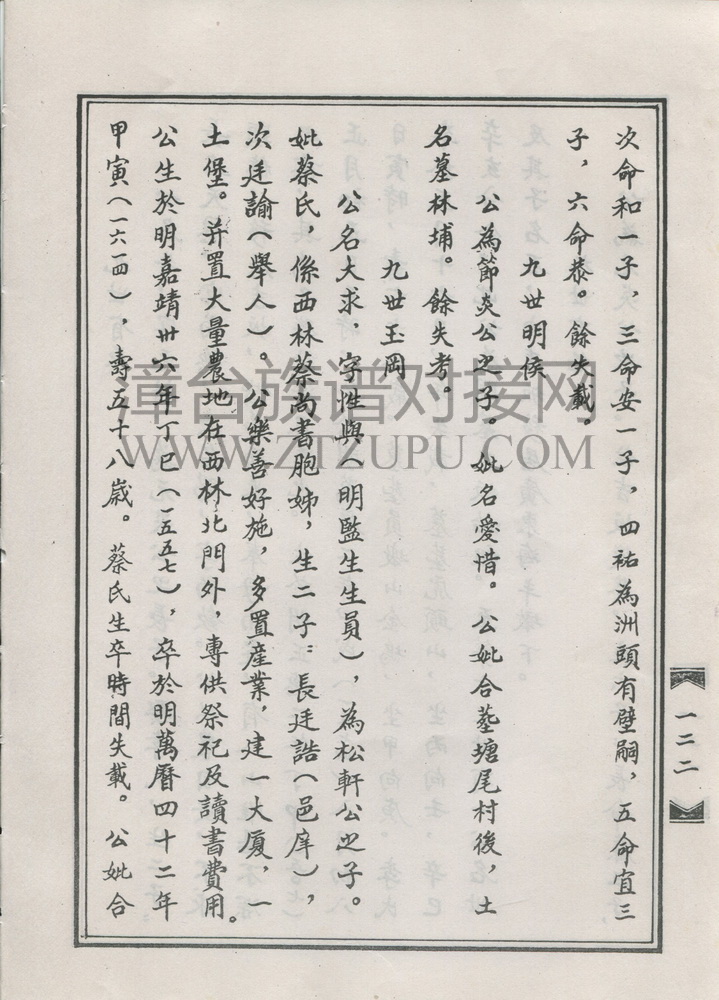 次命和一子，三命安一子，四祐為洲頭有壁嗣，五命宜三
子，六命恭。餘失載。
九世明侯
公為節炎公之子。妣名愛惜。公妣合墓塘尾村後，土
名墓林埔。餘失考。
九世玉岡
公名大求，字性與（明監生生員），為松軒公之子。
妣蔡氏，係西林蔡尚書胞姊，生二子：長廷誥（邑庠），
次廷諭（舉人）。公樂善好施，多置産業，建一大厦，一
土堡。并置大量農地在西林北門外，專供祭祀及讀書費用。
公生於明嘉靖卅六年丁巳（一五五七），卒於明萬曆四十二年
甲寅（一六一四），壽五十八歲。蔡氏生卒時間失載。公妣合
一二二
漳台族谱对接网
WWW.ZTZUPU.COM